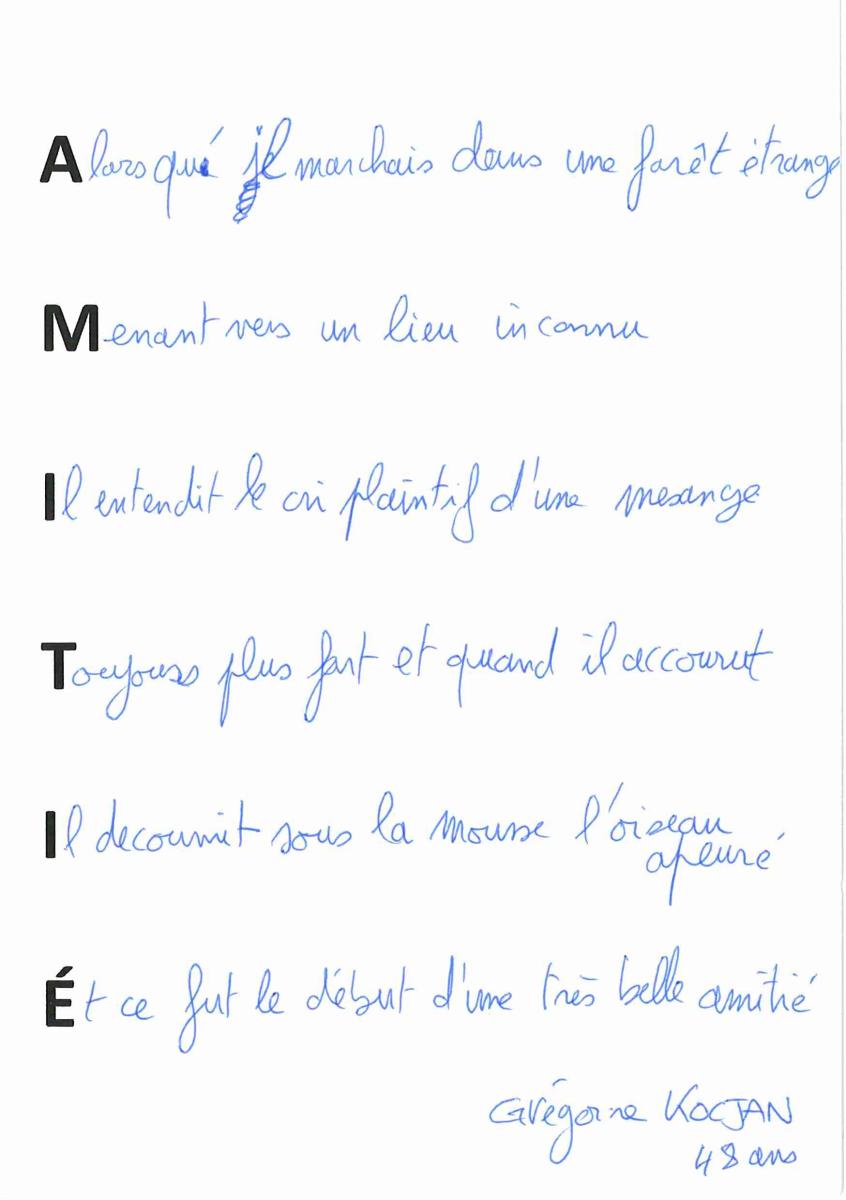 Alors qu' il marchais dans une forêt étrange
Menant vers un lieu inconnu
Il entendit le cri plaintif d'une mesange
Toujours plus fort et quand il accourut
Il decouvrit sous la mousse l'oiseau
apeuré
Ét ce fut le début d'une très belle amitié
Grégoire KOCJAN
48 ans